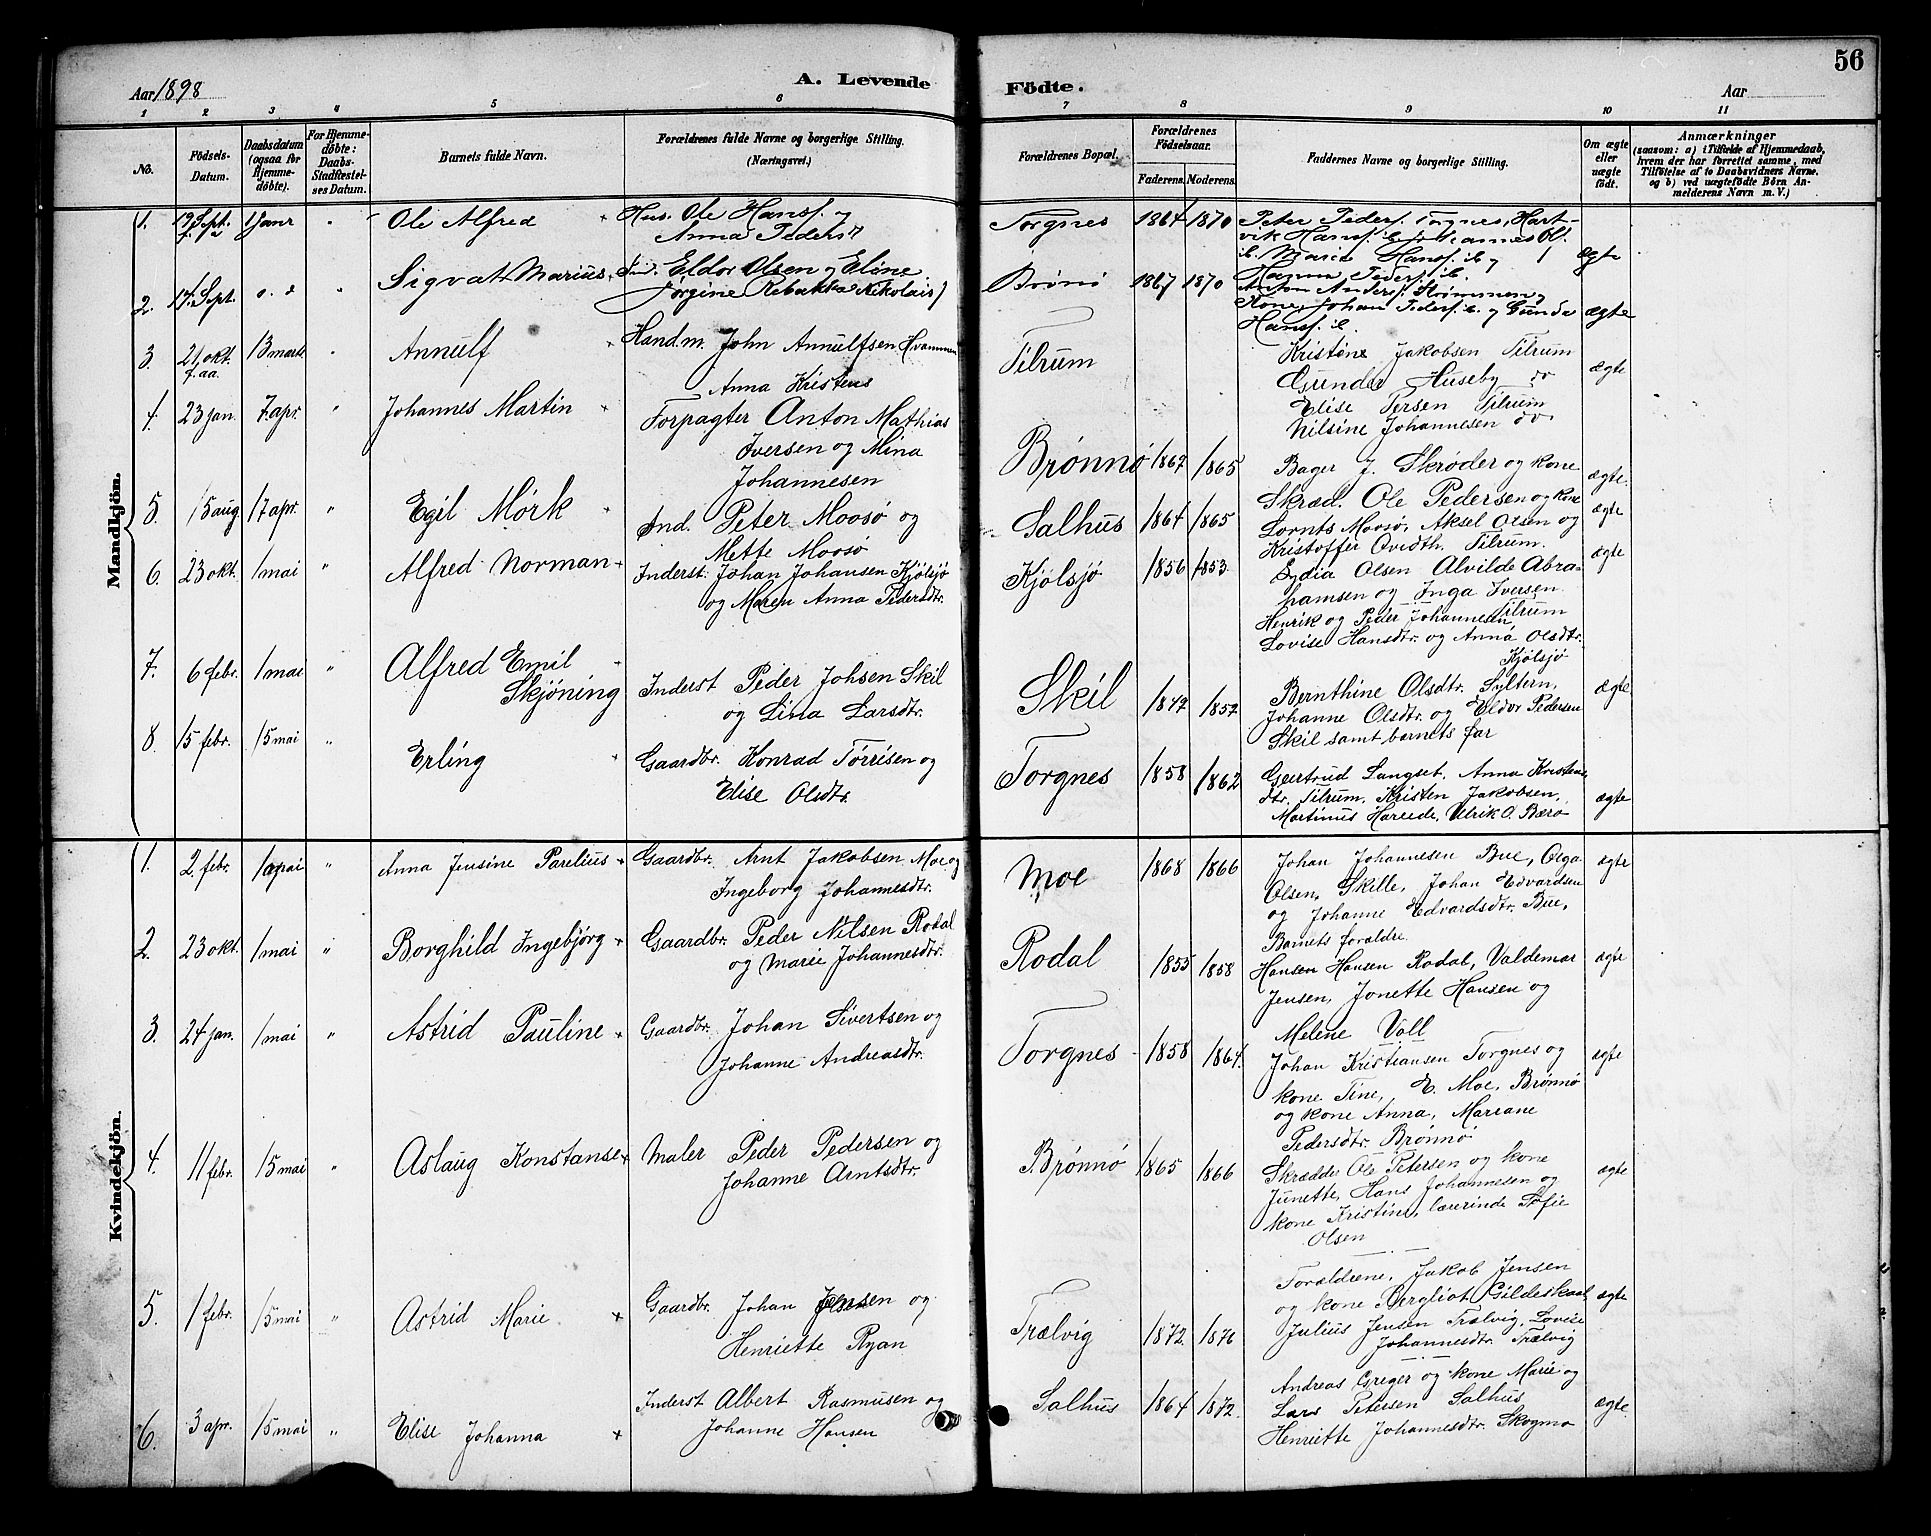 56
Aar 1898
A. Levende
Födte.
Aar
1 2 3 4 5 6 7 8 9 10 11
No.
Födsels-Datum.
Daabsdatum (ogsaa for Hjemme-döbte).
For Hjemme-döbte: Daabs-Stadfæstel-ses Datum.
Barnets fulde Navn.
Forældrenes fulde Navne og borgerlige Stilling. (Næringsvei.)
Forældrenes Bopæl.
Forældrenes Födselsaar.
Faderens. Moderens.
Faddernes Navne og borgerlige Stilling.
Om ægte eller uægte födt.
Anmærkninger
(saasom: a) i Tilfælde af Hjemmedaab, hvem der har forrettet samme, med Tilföielse af to Daabsvidners Navne, og b) ved uægtefödte Börn An-melderens Navn m. V.)
Mandkjön.
1. 19 Sept. 1 janr " Ole Alfred
Hus. Ole Hansf. og
Anna Pedersd
Torgnes 1864 1870
Peter Pedersf. Torgnes, Hart-
vik Hansf. ib Johannes Ol.
ib. Maria Hansf. ib og
Hanna Pedersf. ib.
ægte
2. 17 Sept. s. d " Sigvat Marius
Ind. Eldor Olsen og Eline
Jørgine Rebakka Nikolais
Brønø 1867 1870
Anton Andersf. Strømmen og
Kone, Johan Pedersf. ib. og Gunda
Hansf. ib.
ægte
3. 21 okt. f. aa. 13 marts " Annulf
Handm. John Annulfsen Hvammen
Anna Kristens
Tilrum
Kristine Jakobsen Tilrum
Gunder Huseby do
Elise Tersen Tilrum
Nilsine Johannesen do
ægte
4. 23 jan. 7 apr. " Johannes Martin
Forpagter Anton Mathias
Iversen og Mina
Johannesen
Brønnø 1867 1865
Bager J. Skrøder og kone
Skræd. Ole Pedersen og kone
ægte.
5. 15 aug 17 apr. " Egil Mørk
Ind. Peter Moosø og
Mette Moosø
Salhus 1864 1865
Lornts Moosø, Aksel Olsen og
Kristoffer Qvidth. Tilrum.
ægte
6. 23 okt. 1 mai " Alfred Norman
Inderst. Johan Johansen Kjølsjø
og Maren Anna Pedersdtr.
Kjølsjø 1856 1853
Lydia Olsen Alvilde Abra-
hamsen og Inga Iversen.
Tilrum
Henrik og Peder Johannesen,
Lovise Hansdtr. og Anna Olsdtr.
Kjølsjø
ægte
7. 6 febr. 1 mai " Alfred Emil
Skjøning
Inderst Peder Johsen Skil
og Lina Larsdtr.
Skil 1847 1857
Bernthine Olsdtr. Syltern,
Johanne Olsdtr. og Eldor Pedersen
Skil samt barnets far
ægte
8. 15 febr. 15 mai " Erling
Gaardbr. Konrad Tørrisen og
Elise Olsdtr.
Torgnes 1858 1862
Gertrud Langset, Anna Kristens
dtr. Tilrum, Kristen Jakobsen,
Martinus Hareide, Ulrik O. Bærø
ægte
Kvindekjön.
1. 2. febr. 1 mai " Anna Jensine Parelius
Gaardbr. Arnt Jakobsen Moe og
Ingeborg Johannesdtr.
Moe 1868 1866
Johan Johannesen Bue, Olga
Olsen, Skille, Johan Edvardsen
og Johanne Edvardsdtr. Bue,
Barnets forældre.
ægte
2. 23 okt. 1 mai " Borghild Ingebjørg
Gaardbr. Peder Nilsen Rodal
og Marie Johannesdtr.
Rodal 1855 1858
Hansen Hansen Rodal, Valdemar
Jensen, Jonette Hansen og
Melene Vall
ægte
3. 24 jan. 1 mai " Astrid Pauline
Gaardbr. Johan Sivertsen og
Johanne Andreasdtr.
Torgnes 1858 1864.
Johan Kristiansen Torgnes og
kone Tine, E. Moe, Brønnø
og kone Anna, Mariane
Pedersdtr. Brønnø
ægte
4. 11 febr. 15 mai " Aslaug Konstanse
Maler Peder Pedersen og
Johanne Arntsdtr.
Brønnø 1865 1866
Skrædder Ole Petersen og kone
Junette, Hans Johannesen og
kone Kristine, lærerinde Sofie
Olsen
ægte
5. 1 febr. 15 mai " Astrid Marie
Gaardbr. Johan Jensen og
Henriette Ryan
Trælvig 1872. 1876
Forældrene, Jakob Jensen
og kone Bergliot Gildeskaal,
Julius Jensen Trælvig, Lovise
Johannesdtr. Trælvig
ægte
6. 3 apr. 15 mai " Elise Johanna
Inderst Albert Rasmusen og
Johanne Hansen
Salhus 1864 1872.
Andreas Greger og kone Marie og
Lars Petersen Salhus
Henriette Johannesdtr. Skogmo
ægte.